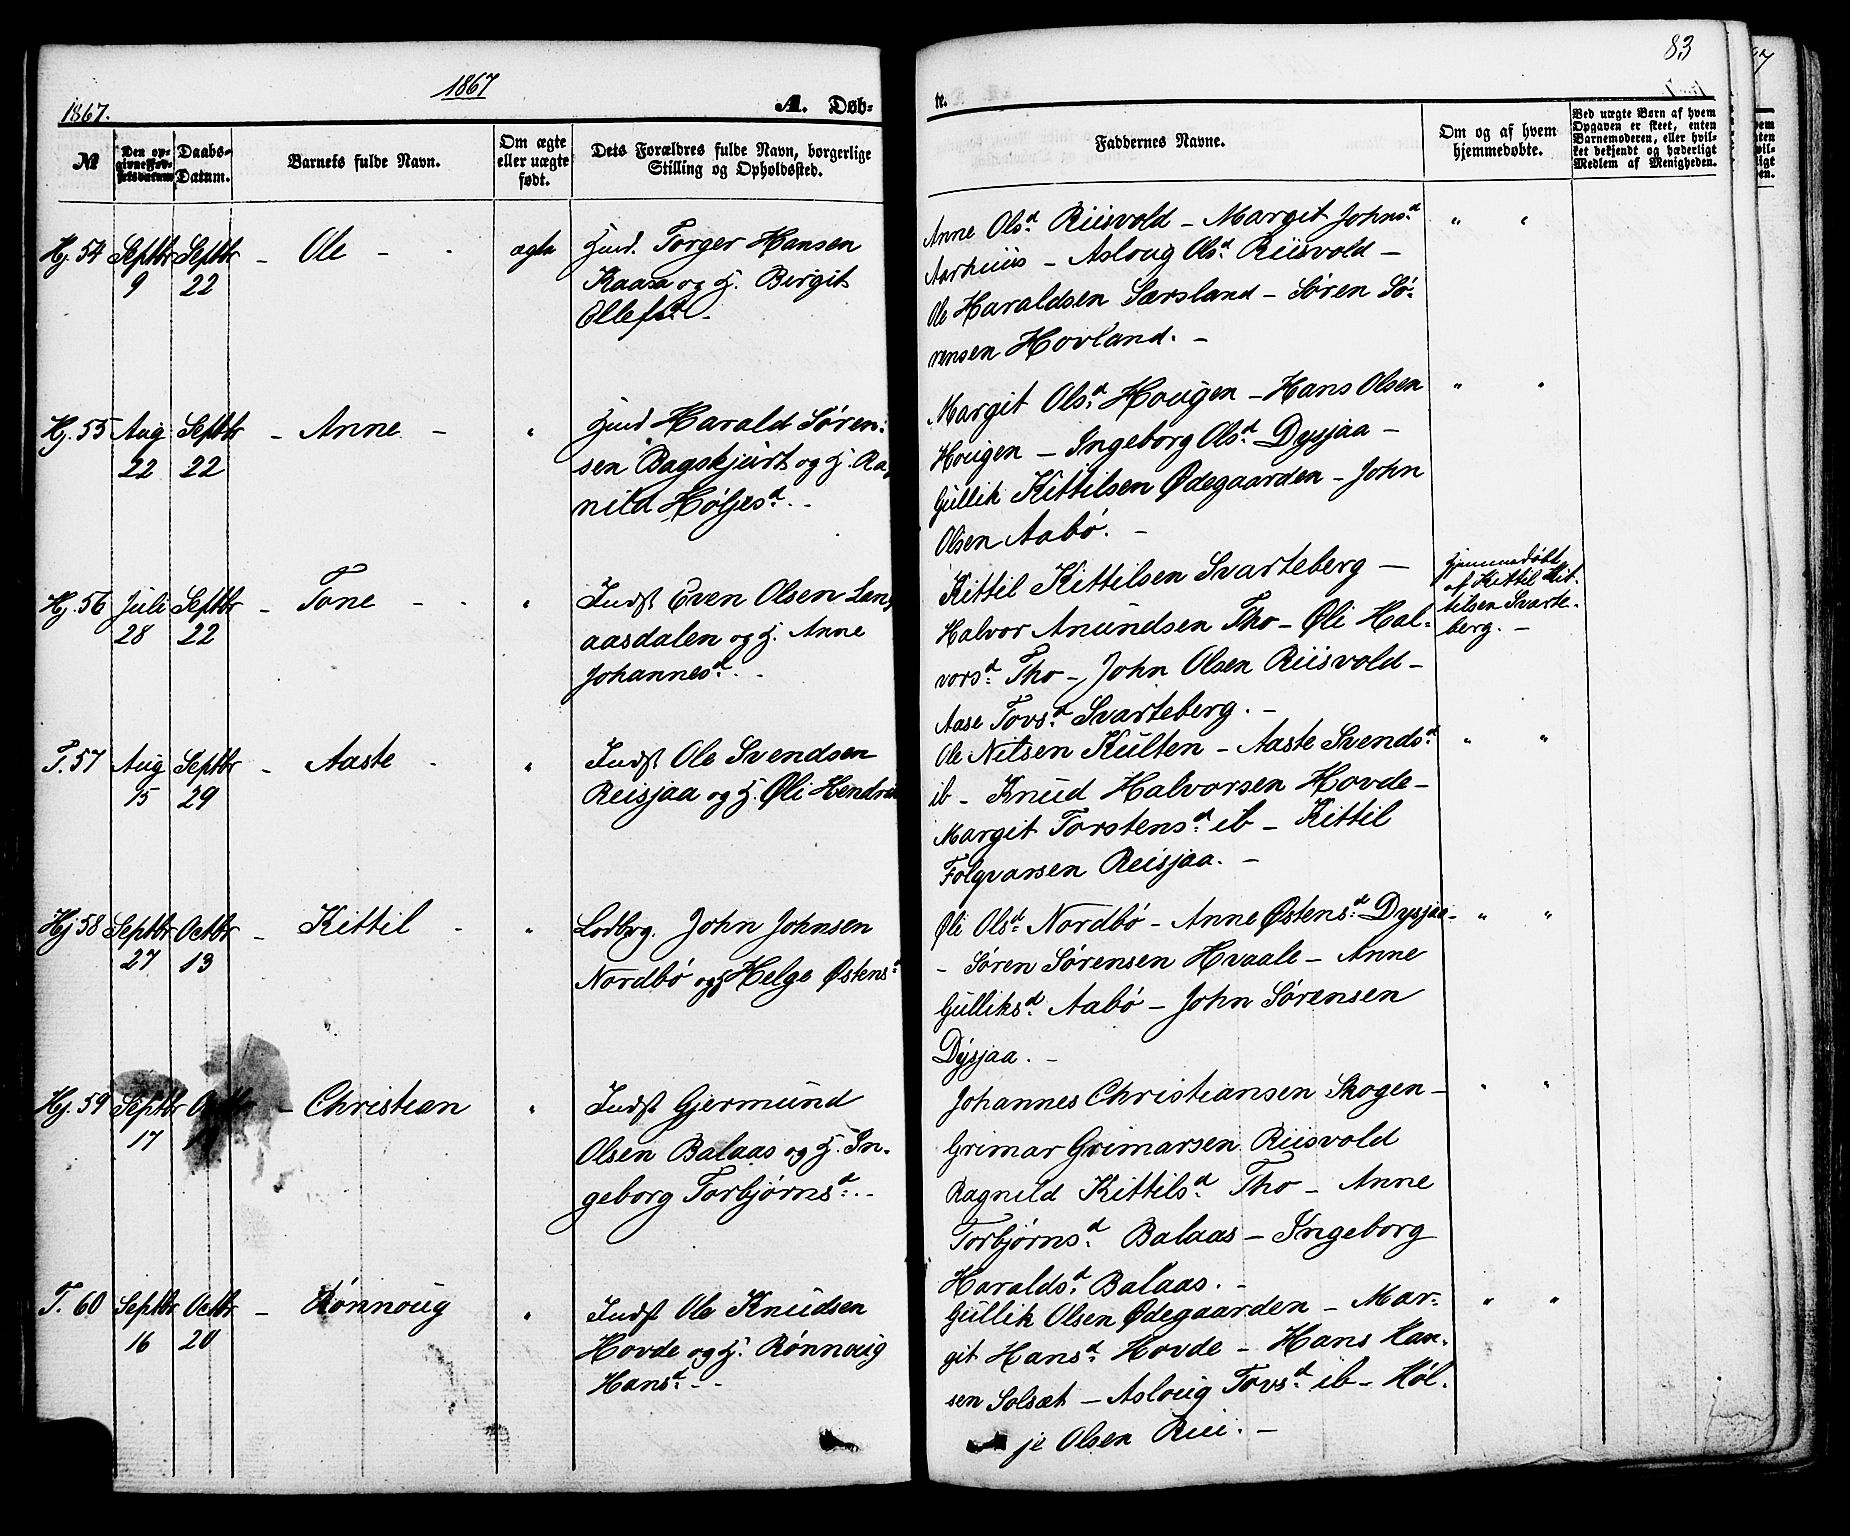 1867
1867.
A. Døb-
№
Den op-
givne Fød-
selsdatum
Daabs-
Datum.
Barnets fulde Navn.
Om ægte
eller uægte
født.
Dets Forældres fulde Navn, borgerlige
Stilling og Opholdssted.
Hj. 54 Septbr Septbr - Ole - - ægte Gmd. Torger Hansen
9 22 Kaasa og H. Birgit
Ellefsd. -
Hj. 55 Aug Septbr - Anne - " Gmd Harald Søren-
22 22 sen Bagskjurt og H. Rag
nild Høljesd. -
Hj. 56 Juli Septbr - Tone - - " Indst Even Olsen Lang
28 22 aasdalen og H. Anne
Johannesd. -
T. 57 Aug Septbr - Aaste - " Indst Ole Svendsen
15 29 Reisjaa og H. Øli Hendrik
Hj 58 Septbr Octbr - Kittil - " Lodbrg. John Johnsen
27 13 Nordbø og H Helge Østensd
Hj. 59 Septbr Octbr - Christian " Indst Gjermund
17 Olsen Balaas og H. In-
geborg Torbjørnsd. -
T. 60 Septbr Octbr - Rønnoug " Indst Ole Knudsen
16 20 Hovde og H. Rønnoug
Hansd. - -
83
te.
Faddernes Navne.
Om og af hvem
hjemmedøbte.
Ved uægte Børn af hvem
Opgaven er skeet, enten
Barnemoderen, eller hvil-
ket bekjendt og hæderligt
Medlem af Menigheden.
Anne Olsd Riisvold - Margit Johnsd " "
Aarhuus - Asloug Olsd Riisvold -
Ole Haraldsen Særsland - Søren Sø-
rensen Hovland. -
Margit Olsd Hougen - Hans Olsen " "
Hougen - Ingeborg Olsd Dysjaa -
Gullik Kittilsen Ødegaarden - John
Olsen Aabø. -
Kittil Kittilsen Svarteberg - Hjemmedøbt
Halvor Anundsen Tho - Øli Hal- af Kittil Kit-
vorsd Tho - John Olsen Riisvold - tilsen Svarte-
Aase Tovsd Svarteberg. - berg. -
Ole Nilsen Kulten - Aaste Svendsd " "
ib - Knud Halvorsen Hovde -
Margit Torstensd ib - Kittil
Folqvarsen Reisjaa. -
Øli Olsd Nordbø - Anne Østensd Dysjaa - " "
- Søren Sørensen Hvaale - Anne
Gulliksd Aabø - John Sørensen
Dysjaa. -
Johannes Christiansen Skogen - " "
Grimar Grimarsen Riisvold
Ragnild Kittilsd Tho - Anne
Torbjørnsd Balaas - Ingeborg
Haraldsd Balaas. -
Gullik Olsen Ødegaarden - Mar- " "
git Hansd Hovde - Hans Han-
sen Solsæt - Asloug Tovsd ib - Høl-
je Olsen Rui. -